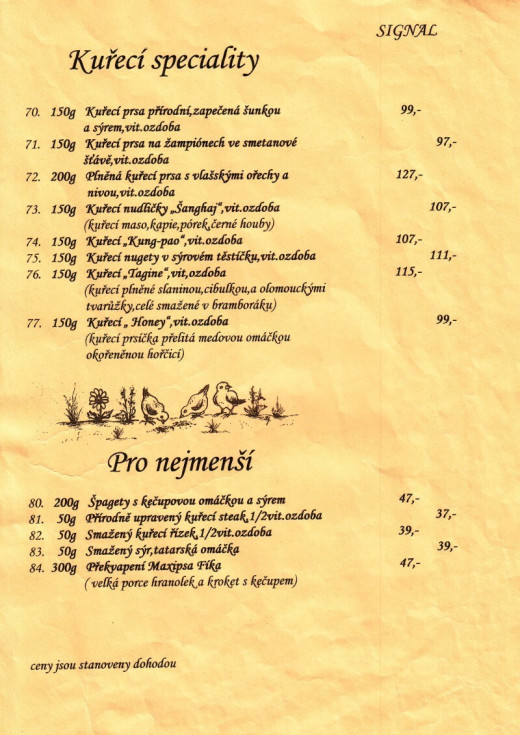 SIGNAL
Kuřecí speciality
70. 150g Kuřecí prsa přírodní,zapečená šunkou 99,-
a sýrem,vit.ozdoba
71. 150g Kuřecí prsa na žampiónech ve smetanové 97,-
šťávě,vit.ozdoba
72. 200g Plněná kuřecí prsa s vlašskými ořechy a 127,-
nivou,vit.ozdoba
73. 150g Kuřecí nudličky „Šanghaj“,vit.ozdoba 107,-
(kuřecí maso,kapie,pórek,černé houby)
74. 150g Kuřecí „Kung-pao“,vit.ozdoba 107,-
75. 150g Kuřecí nugety v sýrovém těstíčku,vit.ozdoba 111,-
76. 150g Kuřecí „Tagine“,vit,ozdoba 115,-
(kuřecí plněné slaninou,cibulkou,a olomouckými
tvarůžky,celé smažené v bramboráku)
77. 150g Kuřecí „ Honey“,vit.ozdoba 99,-
(kuřecí prsíčka přelitá medovou omáčkou
okořeněnou hořčicí)
Pro nejmenší
80. 200g Špagety s kečupovou omáčkou a sýrem 47,-
81. 50g Přírodně upravený kuřecí steak,1/2vit.ozdoba 37,-
82. 50g Smažený kuřecí řízek,1/2vit.ozdoba 39,-
83. 50g Smažený sýr,tatarská omáčka 39,-
84. 300g Překvapení Maxipsa Fíka 47,-
( velká porce hranolek a kroket s kečupem)
ceny jsou stanoveny dohodou